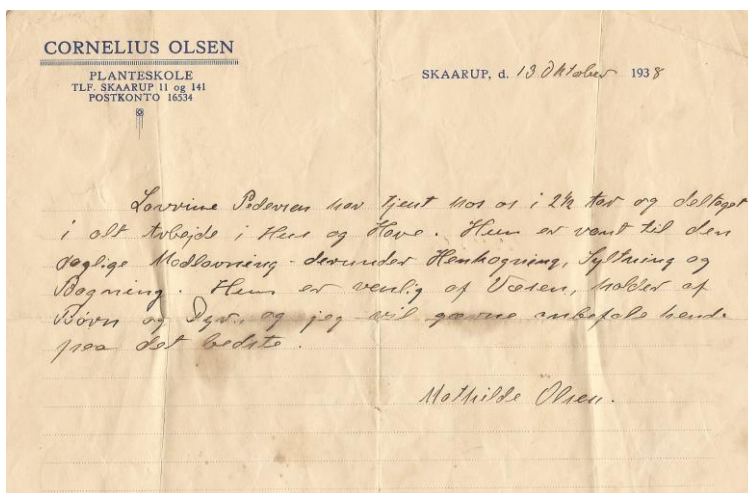 CORNELIUS OLSEN
PLANTESKOLE
TLF. SKAARUP 11 og 141
POSTKONTO 16534
SKAARUP, d. 13 Oktober 1938
Lavrine Pedersen har tjent hos os i 2½ Aar og deltaget
i alt Arbejde i Hus og Have. Hun er vant til den
daglige Madlavning - derunder Henkogning, Syltning og
Bagning. Hun er venlig af Væsen, holder af
Børn og Dyr, og jeg vil gærne anbefale hende
paa det bedste.
Mathilde Olsen.